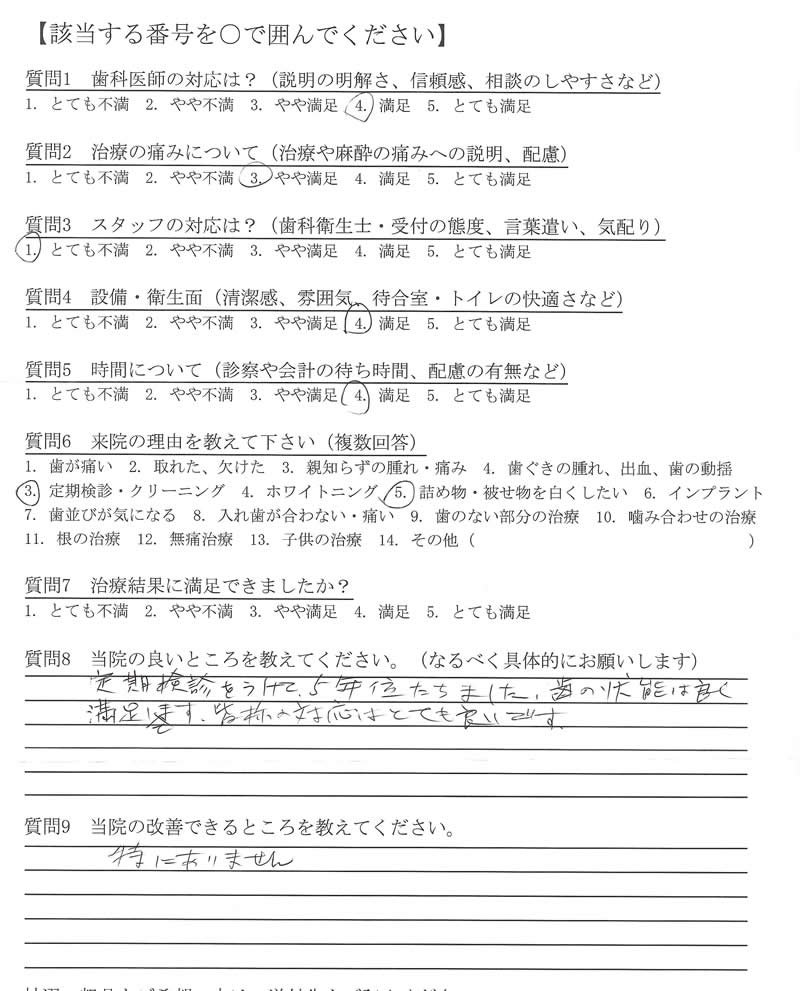 【該当する番号を○で囲んでください】
質問1 歯科医師の対応は？（説明の明解さ、信頼感、相談のしやすさなど）
1. とても不満 2. やや不満 3. やや満足 4. 満足 5. とても満足
質問2 治療の痛みについて（治療や麻酔の痛みへの説明、配慮）
1. とても不満 2. やや不満 3. やや満足 4. 満足 5. とても満足
質問3 スタッフの対応は？（歯科衛生士・受付の態度、言葉遣い、気配り）
1. とても不満 2. やや不満 3. やや満足 4. 満足 5. とても満足
質問4 設備・衛生面（清潔感、雰囲気、待合室・トイレの快適さなど）
1. とても不満 2. やや不満 3. やや満足 4. 満足 5. とても満足
質問5 時間について（診察や会計の待ち時間、配慮の有無など）
1. とても不満 2. やや不満 3. やや満足 4. 満足 5. とても満足
質問6 来院の理由を教えて下さい（複数回答）
1. 歯が痛い 2. 取れた、欠けた 3. 親知らずの腫れ・痛み 4. 歯ぐきの腫れ、出血、歯の動揺
3. 定期検診・クリーニング 4. ホワイトニング 5. 詰め物・被せ物を白くしたい 6. インプラント
7. 歯並びが気になる 8. 入れ歯が合わない・痛い 9. 歯のない部分の治療 10. 噛み合わせの治療
11. 根の治療 12. 無痛治療 13. 子供の治療 14. その他（ ）
質問7 治療結果に満足できましたか？
1. とても不満 2. やや不満 3. やや満足 4. 満足 5. とても満足
質問8 当院の良いところを教えてください。（なるべく具体的にお願いします）
定期検診をうけて、5年位たちました、歯の状態は良く
満足します、皆様の対応はとても良いです
質問9 当院の改善できるところを教えてください。
特にありません